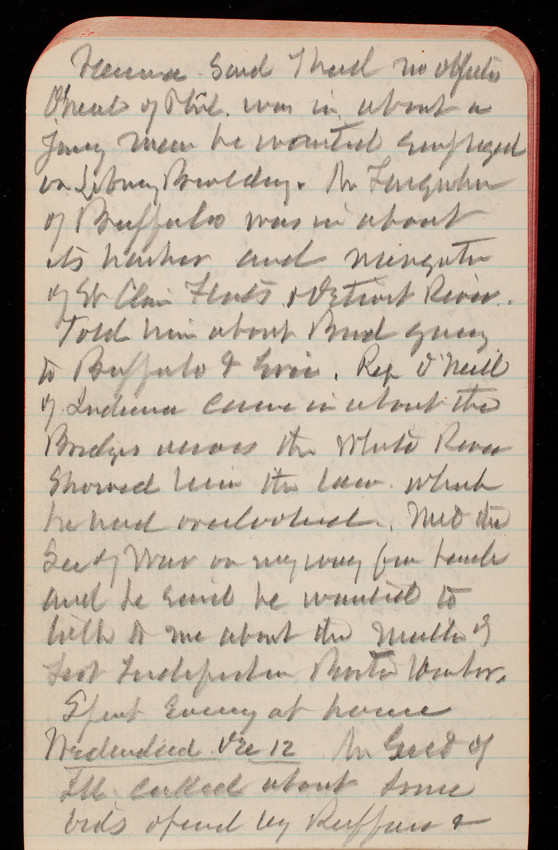 said I had no objection
of Phil. was in about a
young man he wanted employed
on Library Building. Mr Farquhar
of Buffalo was in about
its harbor and navigation
of St Clair Flats & Detroit River.
Told him about Board going
to Buffalo & Erie. Rep O'Neill
of Indiana came in about the
Bridges across the White River
Showed him the law which
he had overlooked. Met the
Secy of War on my way from lunch
and he said he wanted to
talk to me about the matter of
Fort Independence Boston Harbor.
Spent Evening at home
Wednesday Dec 12 Mr
Ill. called about some
bids opened by Ruffner &